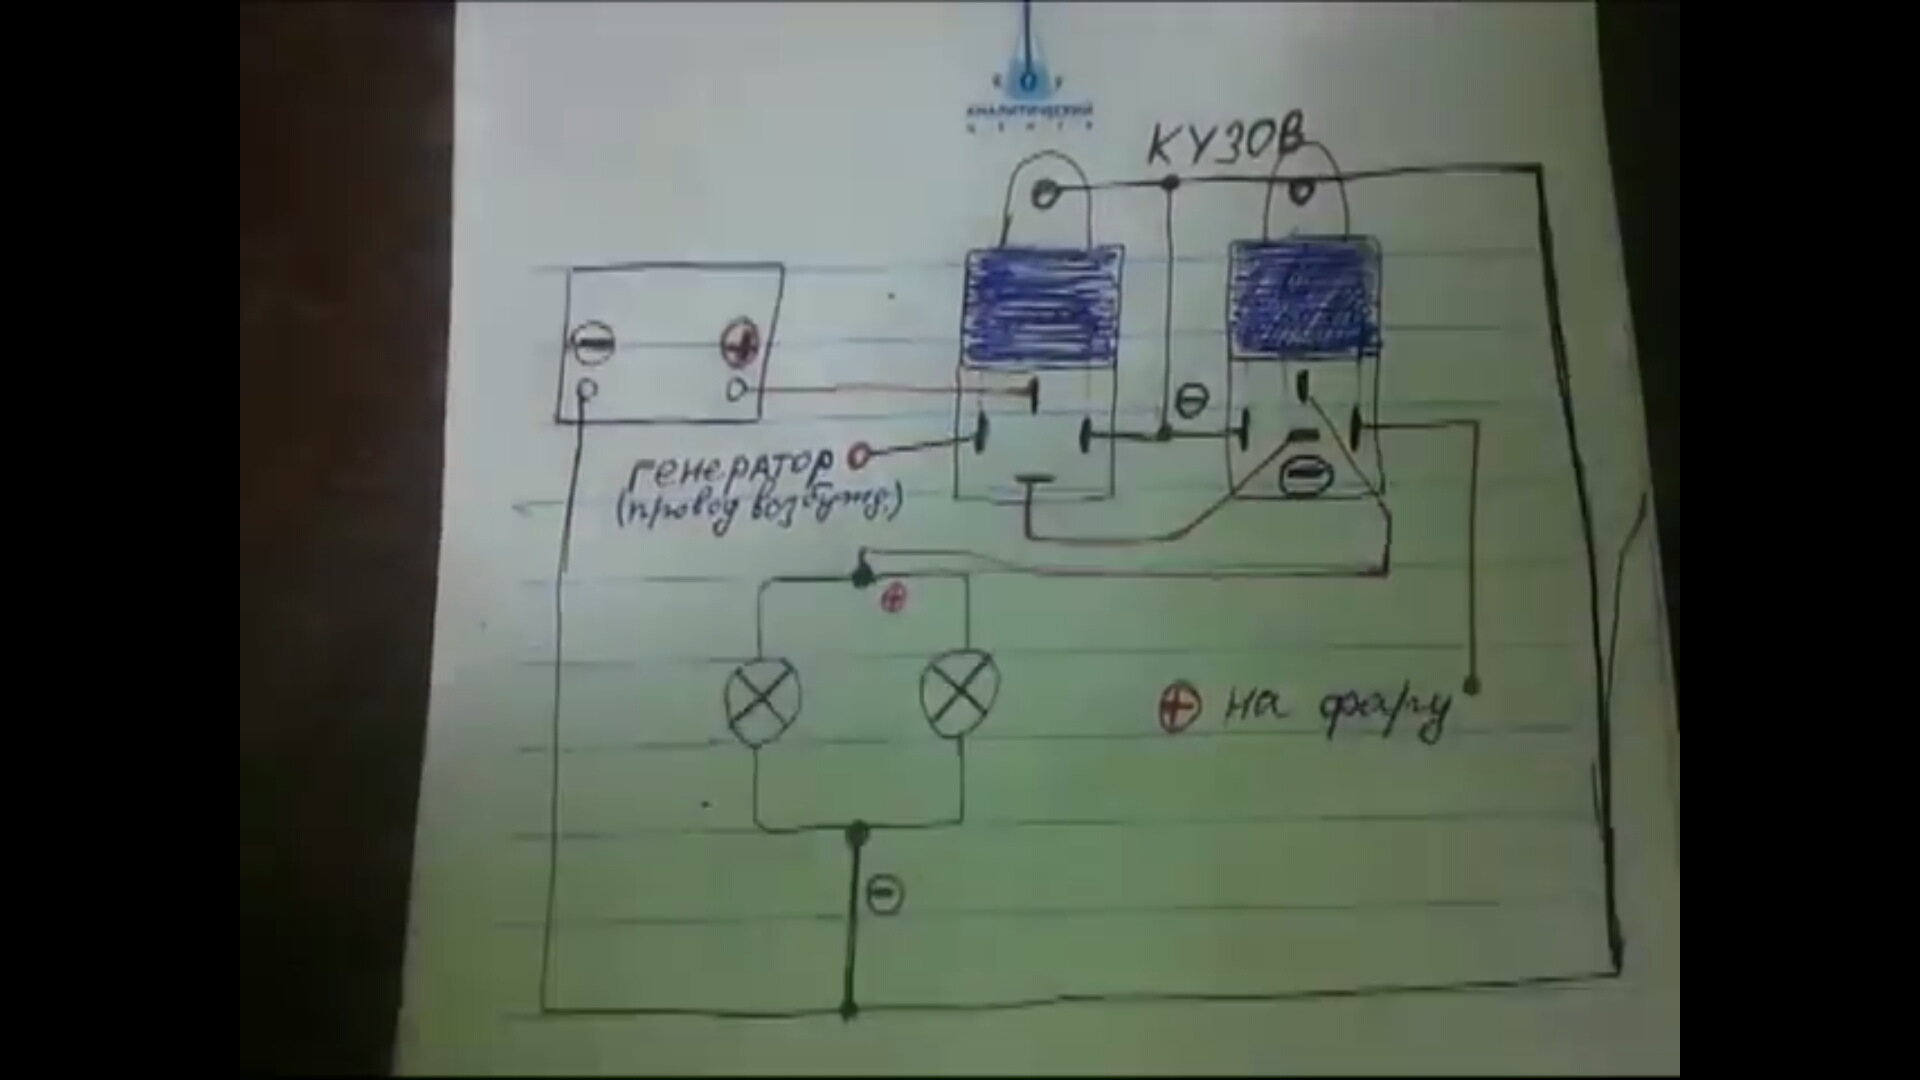 АНАЛИТИЧЕСКИЙ
ЦЕНТР
КУЗОВ
ГЕНЕРАТОР
(провод возбужд.)
на фару